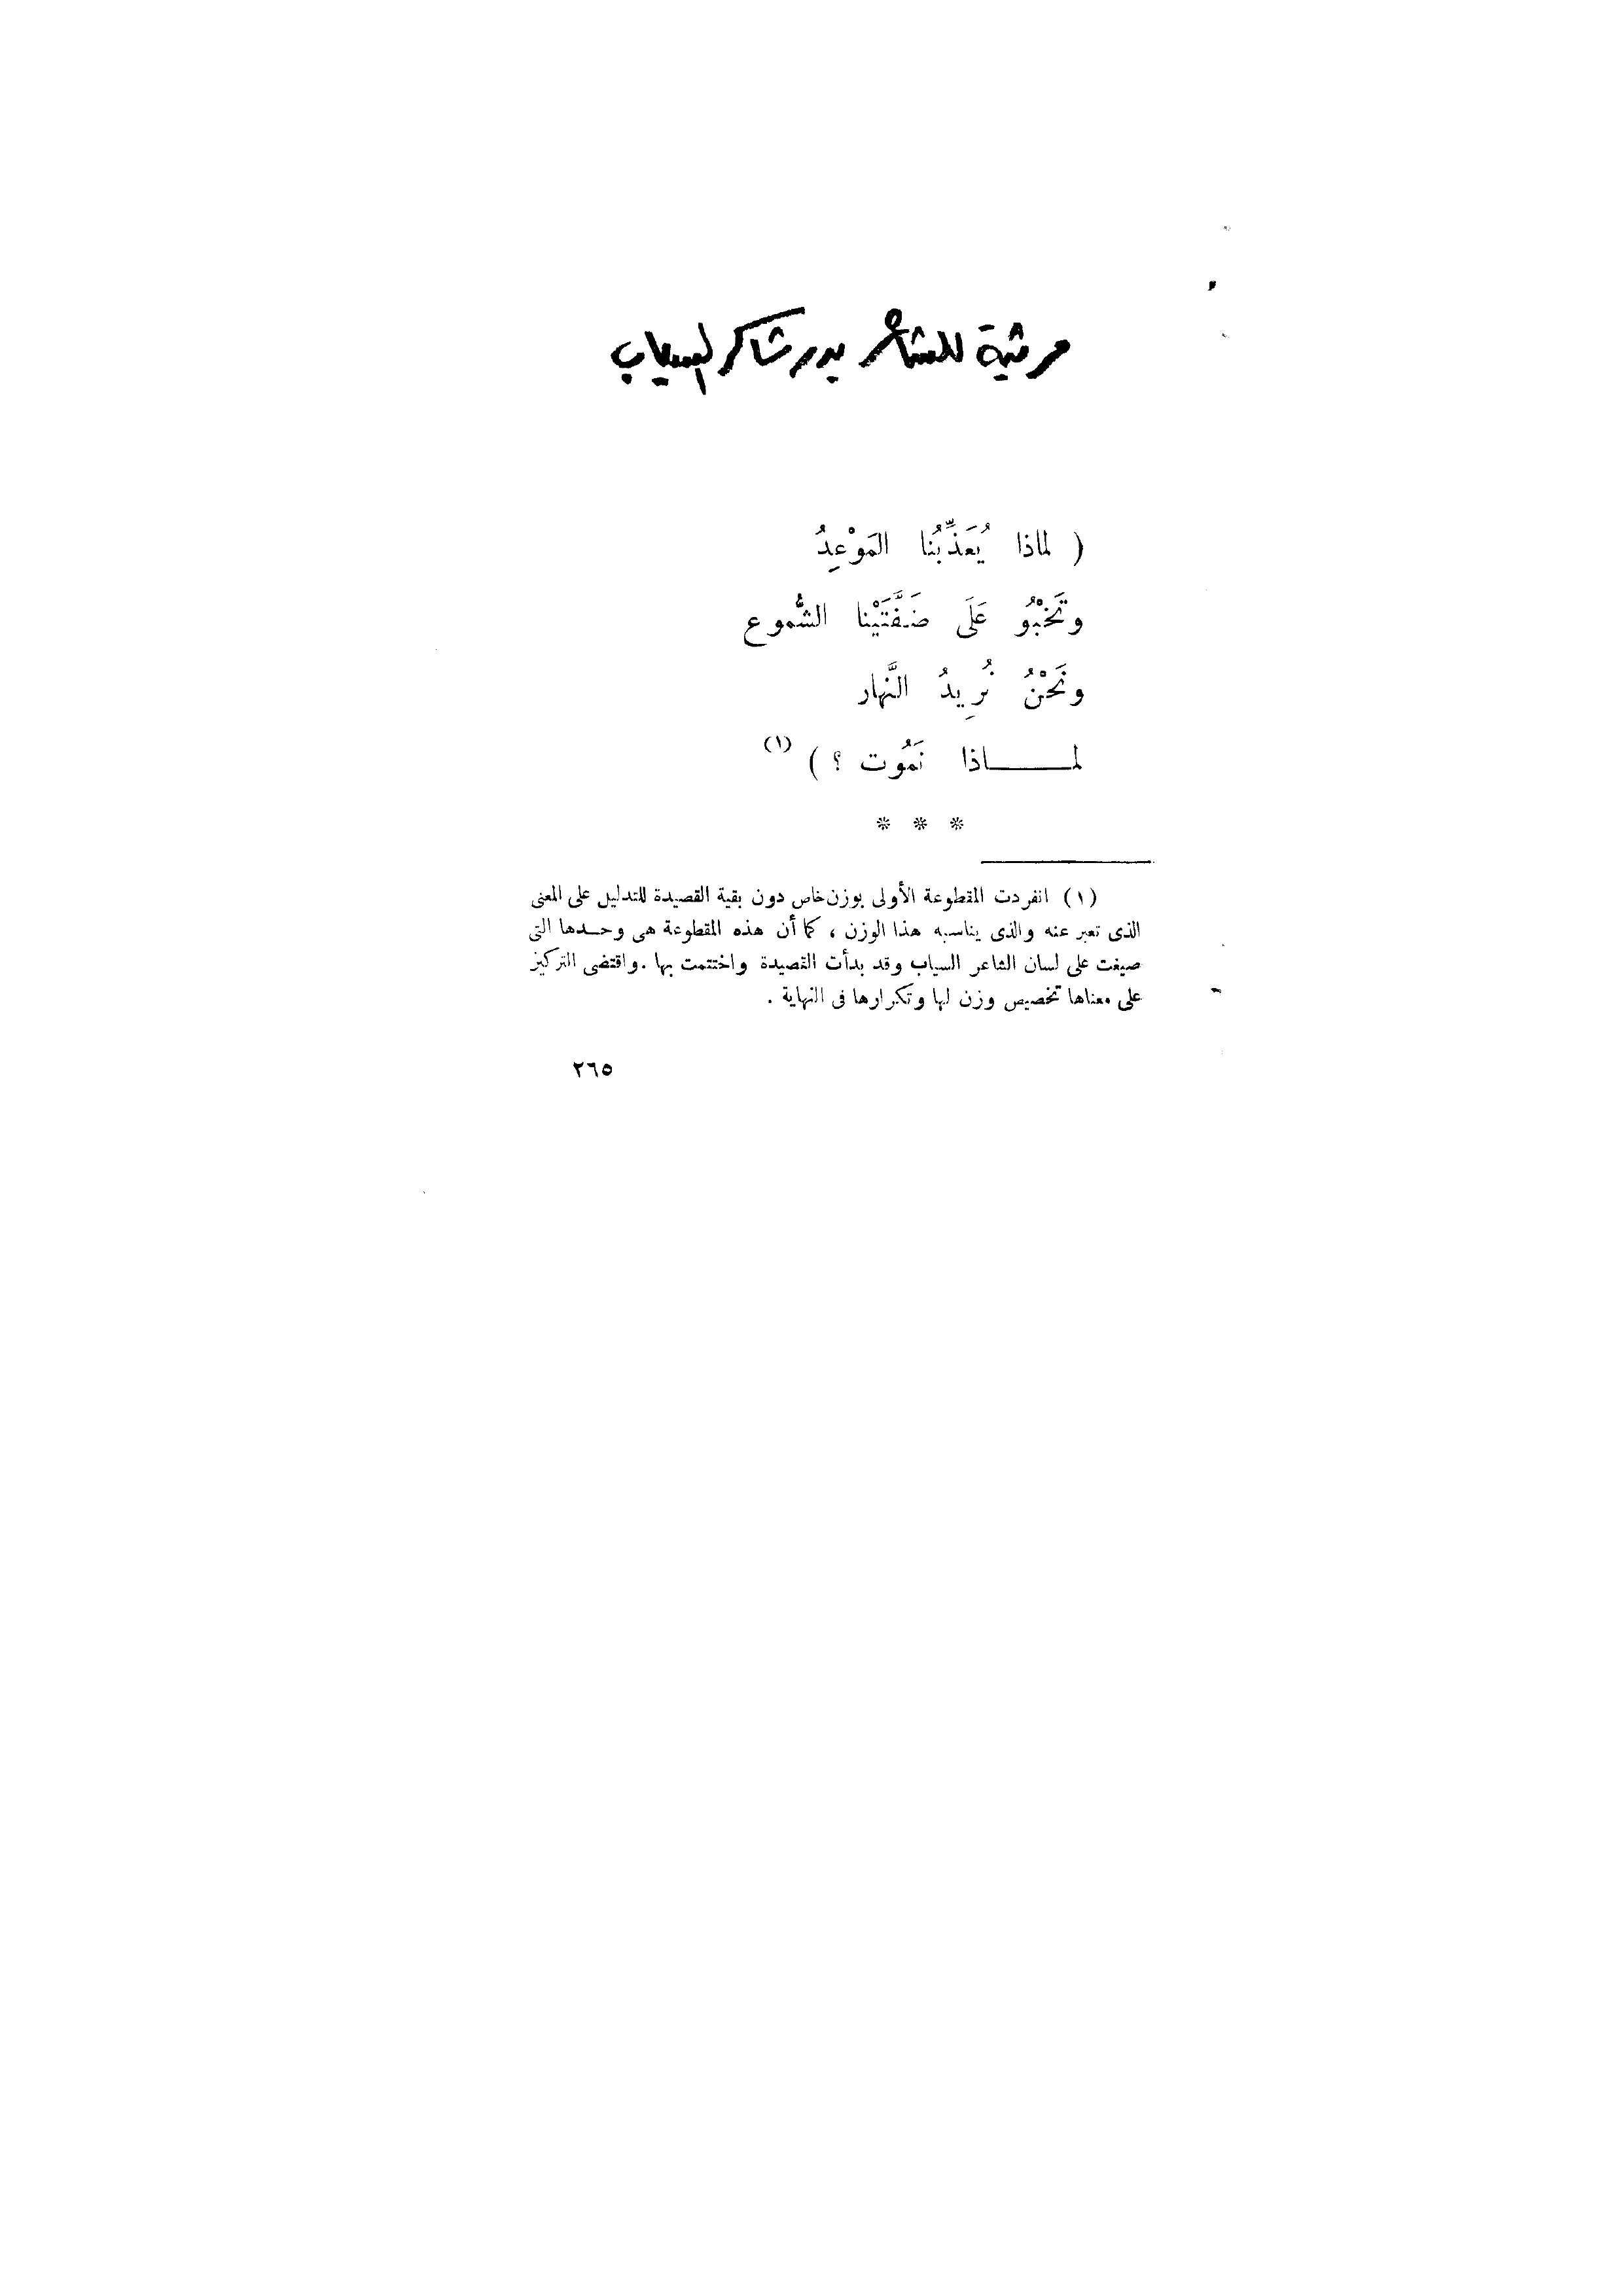 مرثية للشاعر بدر شاكر السياب
( لماذا يُعَذِّبُنا المَوْعِدُ
وتَخْبُو عَلَى ضَفَّتَيْنا الشُّموع
ونَحْنُ نُرِيدُ النَّهار
لمـــــاذا نَمُوت ؟ ) (١)
* * *
(١) انفردت المقطوعة الأولى بوزن خاص دون بقية القصيدة للتدليل على المعنى
الذى تعبر عنه والذى يناسبه هذا الوزن ، كما أن هذه المقطوعة هى وحـدها التى
صيغت على لسان الشاعر السياب وقد بدأت القصيدة واختتمت بها . واقتضى التركيز
على معناها تخصيص وزن لها وتكرارها فى النهاية .
٢٦٥